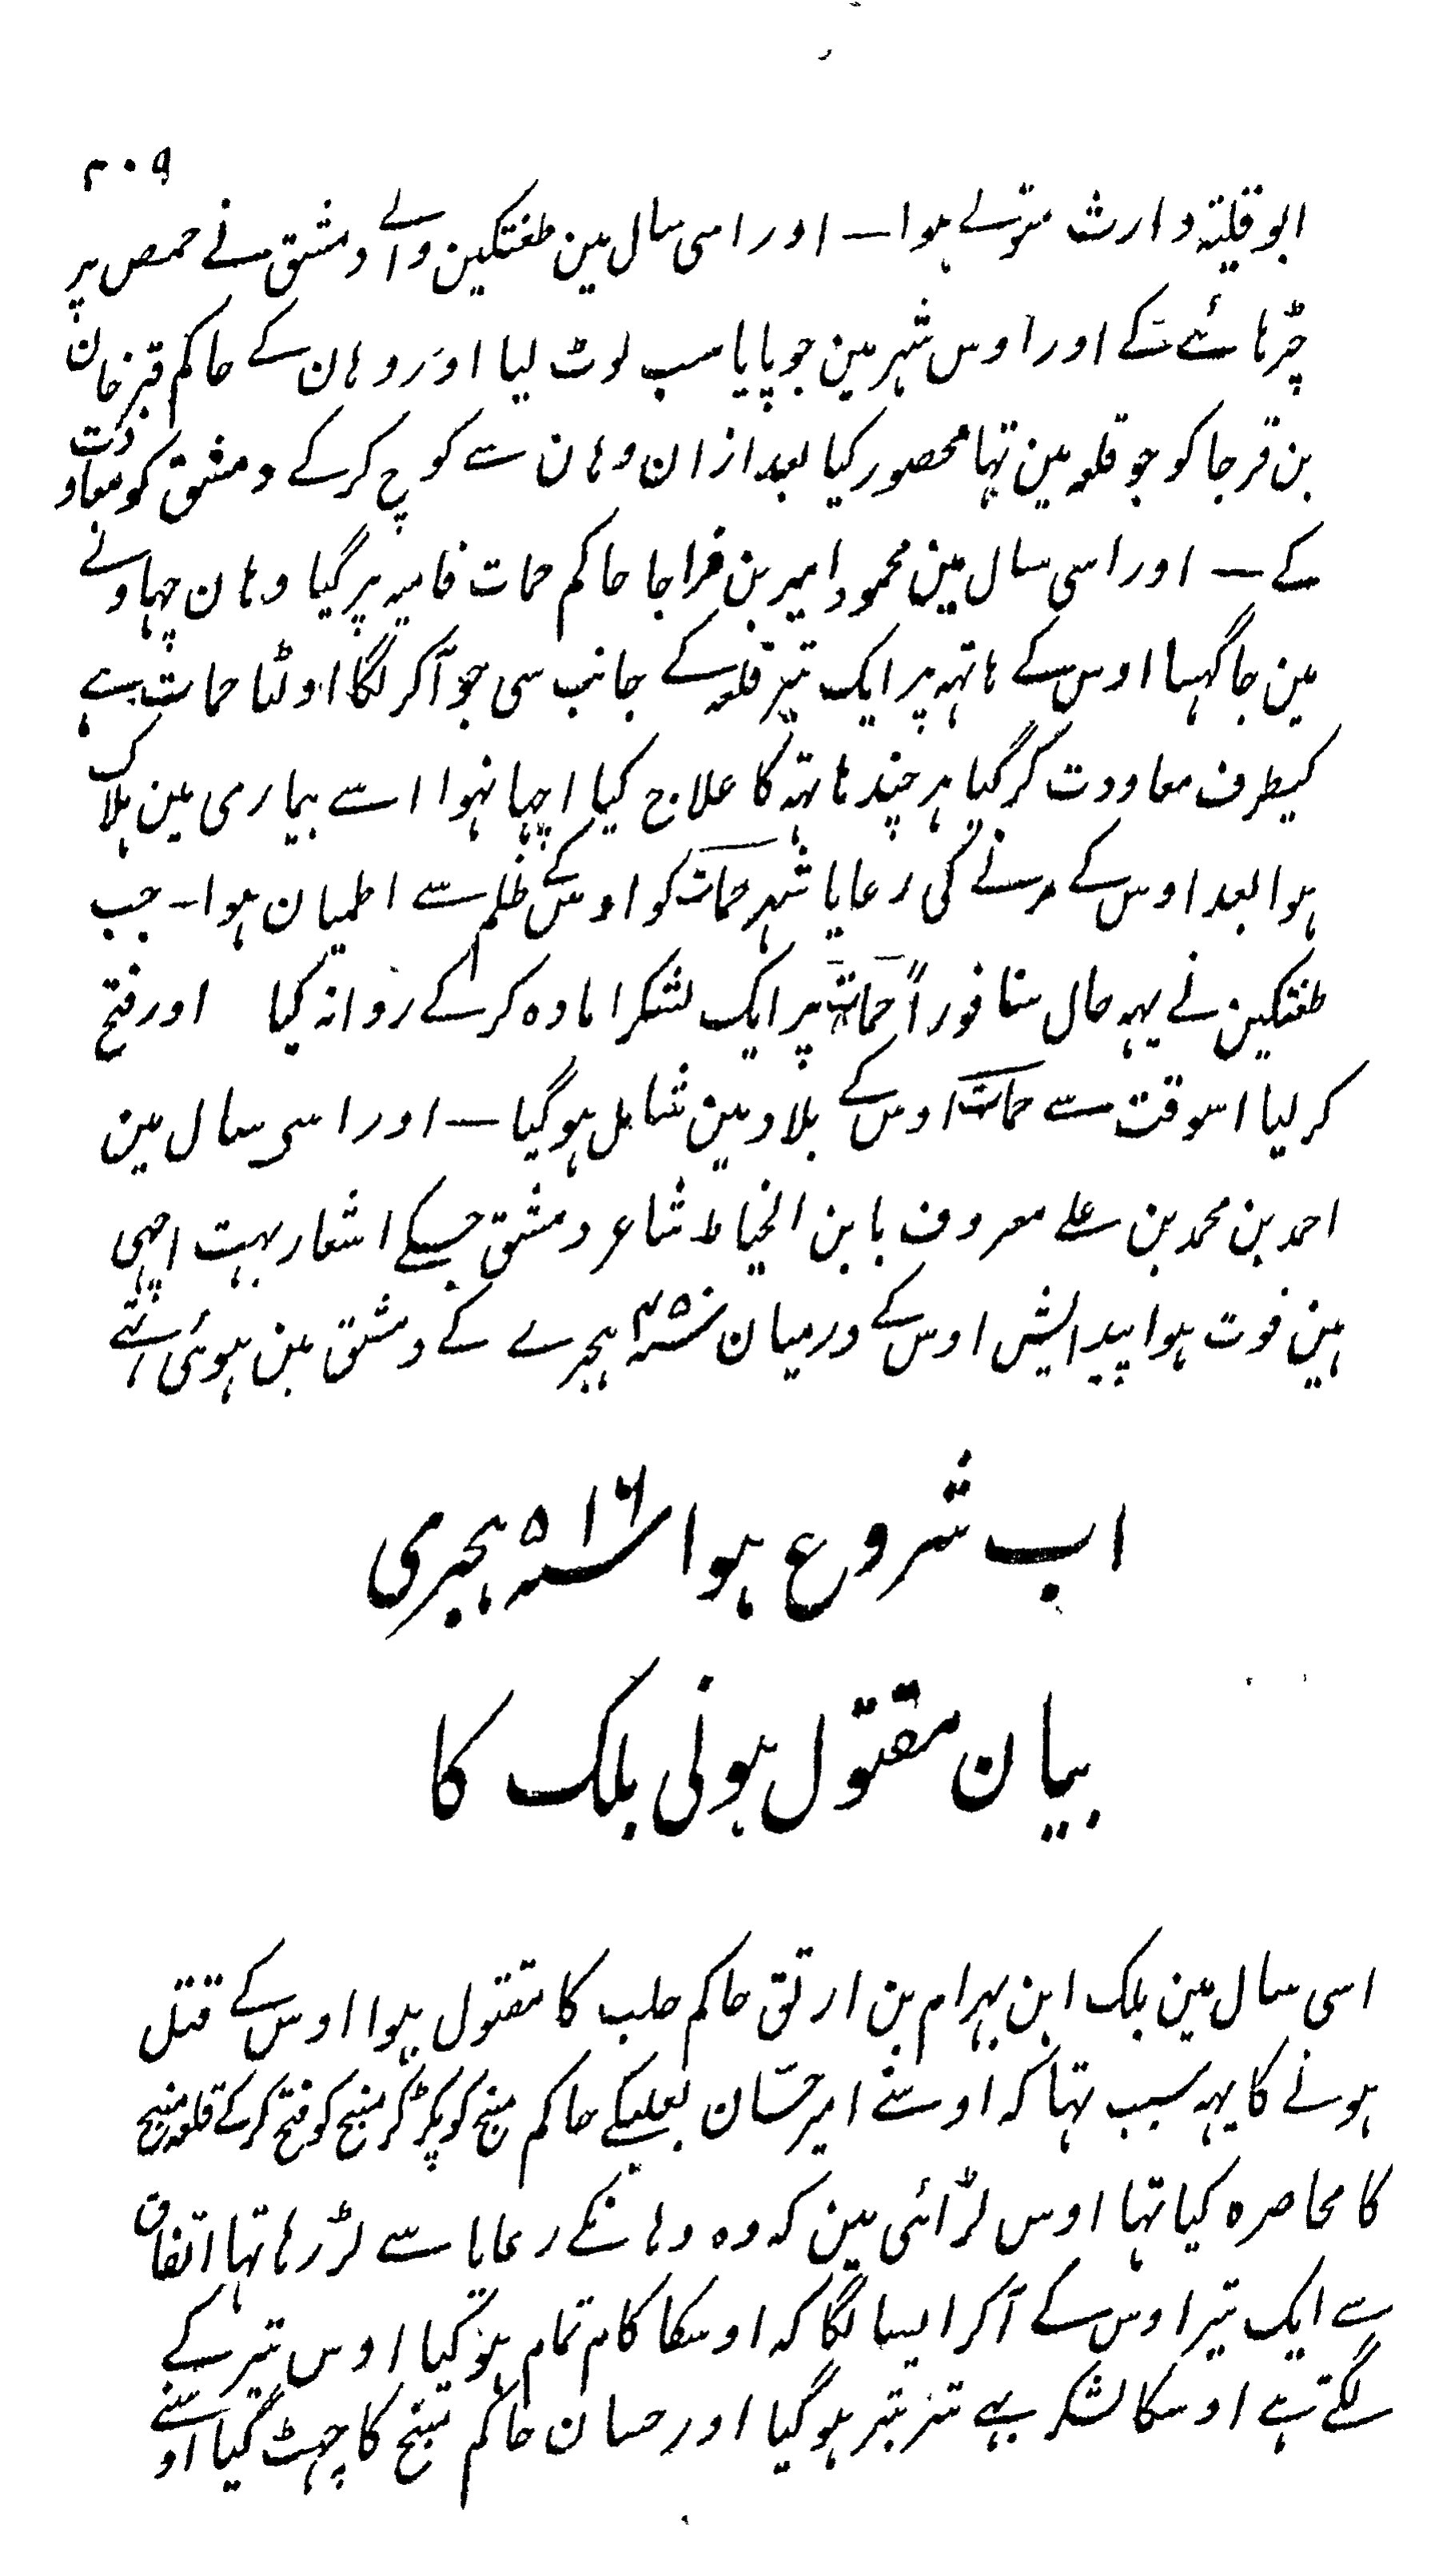 ۲۰۹
ابو قلیتہ وارث متولے ہوا — اور اسی سال مین طغتکین والے دمشق نے حمص پر
چڑہائے کے اور اوس شہر مین جو پایا سب لوٹ لیا اور وہان کے حاکم قیرخان
بن قرجا کو جو قلعہ مین تہا محصور کیا بعد ازان وہان سے کوچ کرکے دمشق کو معاودت
کے — اور اسی سال مین محمود امیر بن قراجا حاکم حمات فامیہ پر گیا وہان چہاونے
مین جا گہسا اوس کے ہاتہہ پر ایک تیر قلعہ کے جانب سی جو آکر لگا اولٹا حمات ہے
کیطرف معاودت کر گیا ہر چند ہاتہہ کا علاج کیا اچہا نہوا اسے بیماری مین ہلاک
ہوا بعد اوس کے مرنے کی رعایا شہر حمات کو اوس کے ظلم سے اطمیان ہوا — جب
طغتکین نے یہہ حال سنا فوراً حمات پر ایک لشکر امادہ کر کے روانہ کیا اور فتح
کر لیا اسوقت سے حمات اوس کے بلاد مین شامل ہو گیا — اور اسی سال مین
احمد بن محمد بن علے معروف بابن الخیاط شاعر دمشق جسکے اشعار بہت اچہی
ہین فوت ہوا پیدایش اوس کے درمیان سنہ ۴۵۰ ہجرے کے دمشق مین ہوئی تہے
اب شروع ہوا سنہ ۵۱۶ ہجری
بیان مقتول ہونی بلک کا
اسی سال مین بلک ابن بہرام بن ارتق حاکم حلب کا مقتول ہوا اوس کے قتل
ہونے کا یہہ سبب تہا کہ اوسنے امیر حسّان بعلبکے حاکم منبج کو پکڑ کر منبج کو فتح کر کے قلعہ منبج
کا محاصرہ کیا تہا اوس لڑائی مین کہ وہ وہانکے رعایا سے لڑ رہا تہا اتفاق
سے ایک تیر اوس کے آکر ایسا لگا کہ اوسکا کام تمام ہو گیا اوس تیر کے
لگتے ہے اوسکا لشکر بہے تتر بتر ہو گیا اور حسان حاکم منبج کا چہٹ گیا اوسنے